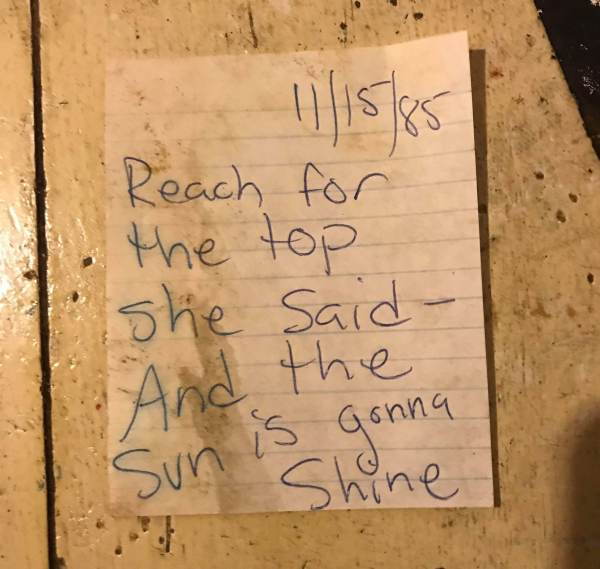 11/15/85
Reach for
the top
she Said -
And the
Sun is gonna
Shine